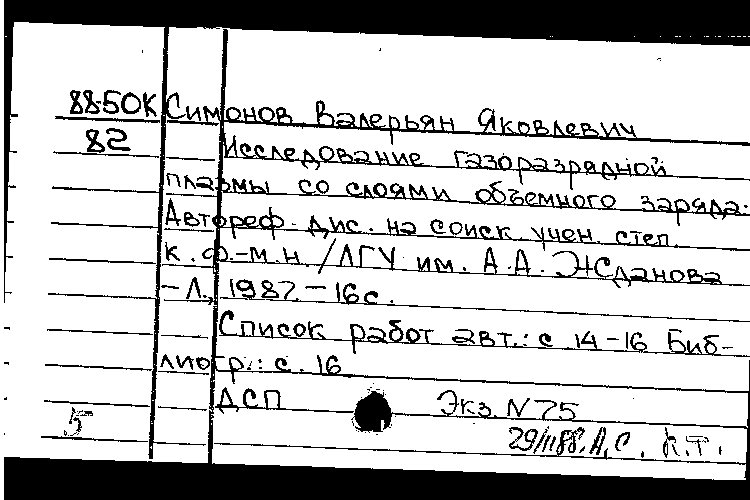 88-50К Симонов Валерьян Яковлевич
82 Исследование газоразрядной
плазмы со слоями объемного заряда:
Автореф. дис. на соиск. учен. степ.
к. ф.-м.н. / ЛГУ им. А.А. Жданова
– Л., 1987. – 16с.
Список работ авт.: с 14-16 Биб-
лиогр.: с. 16
ДСП Экз. N 75
5 29/II 88. А.С. К.Т.